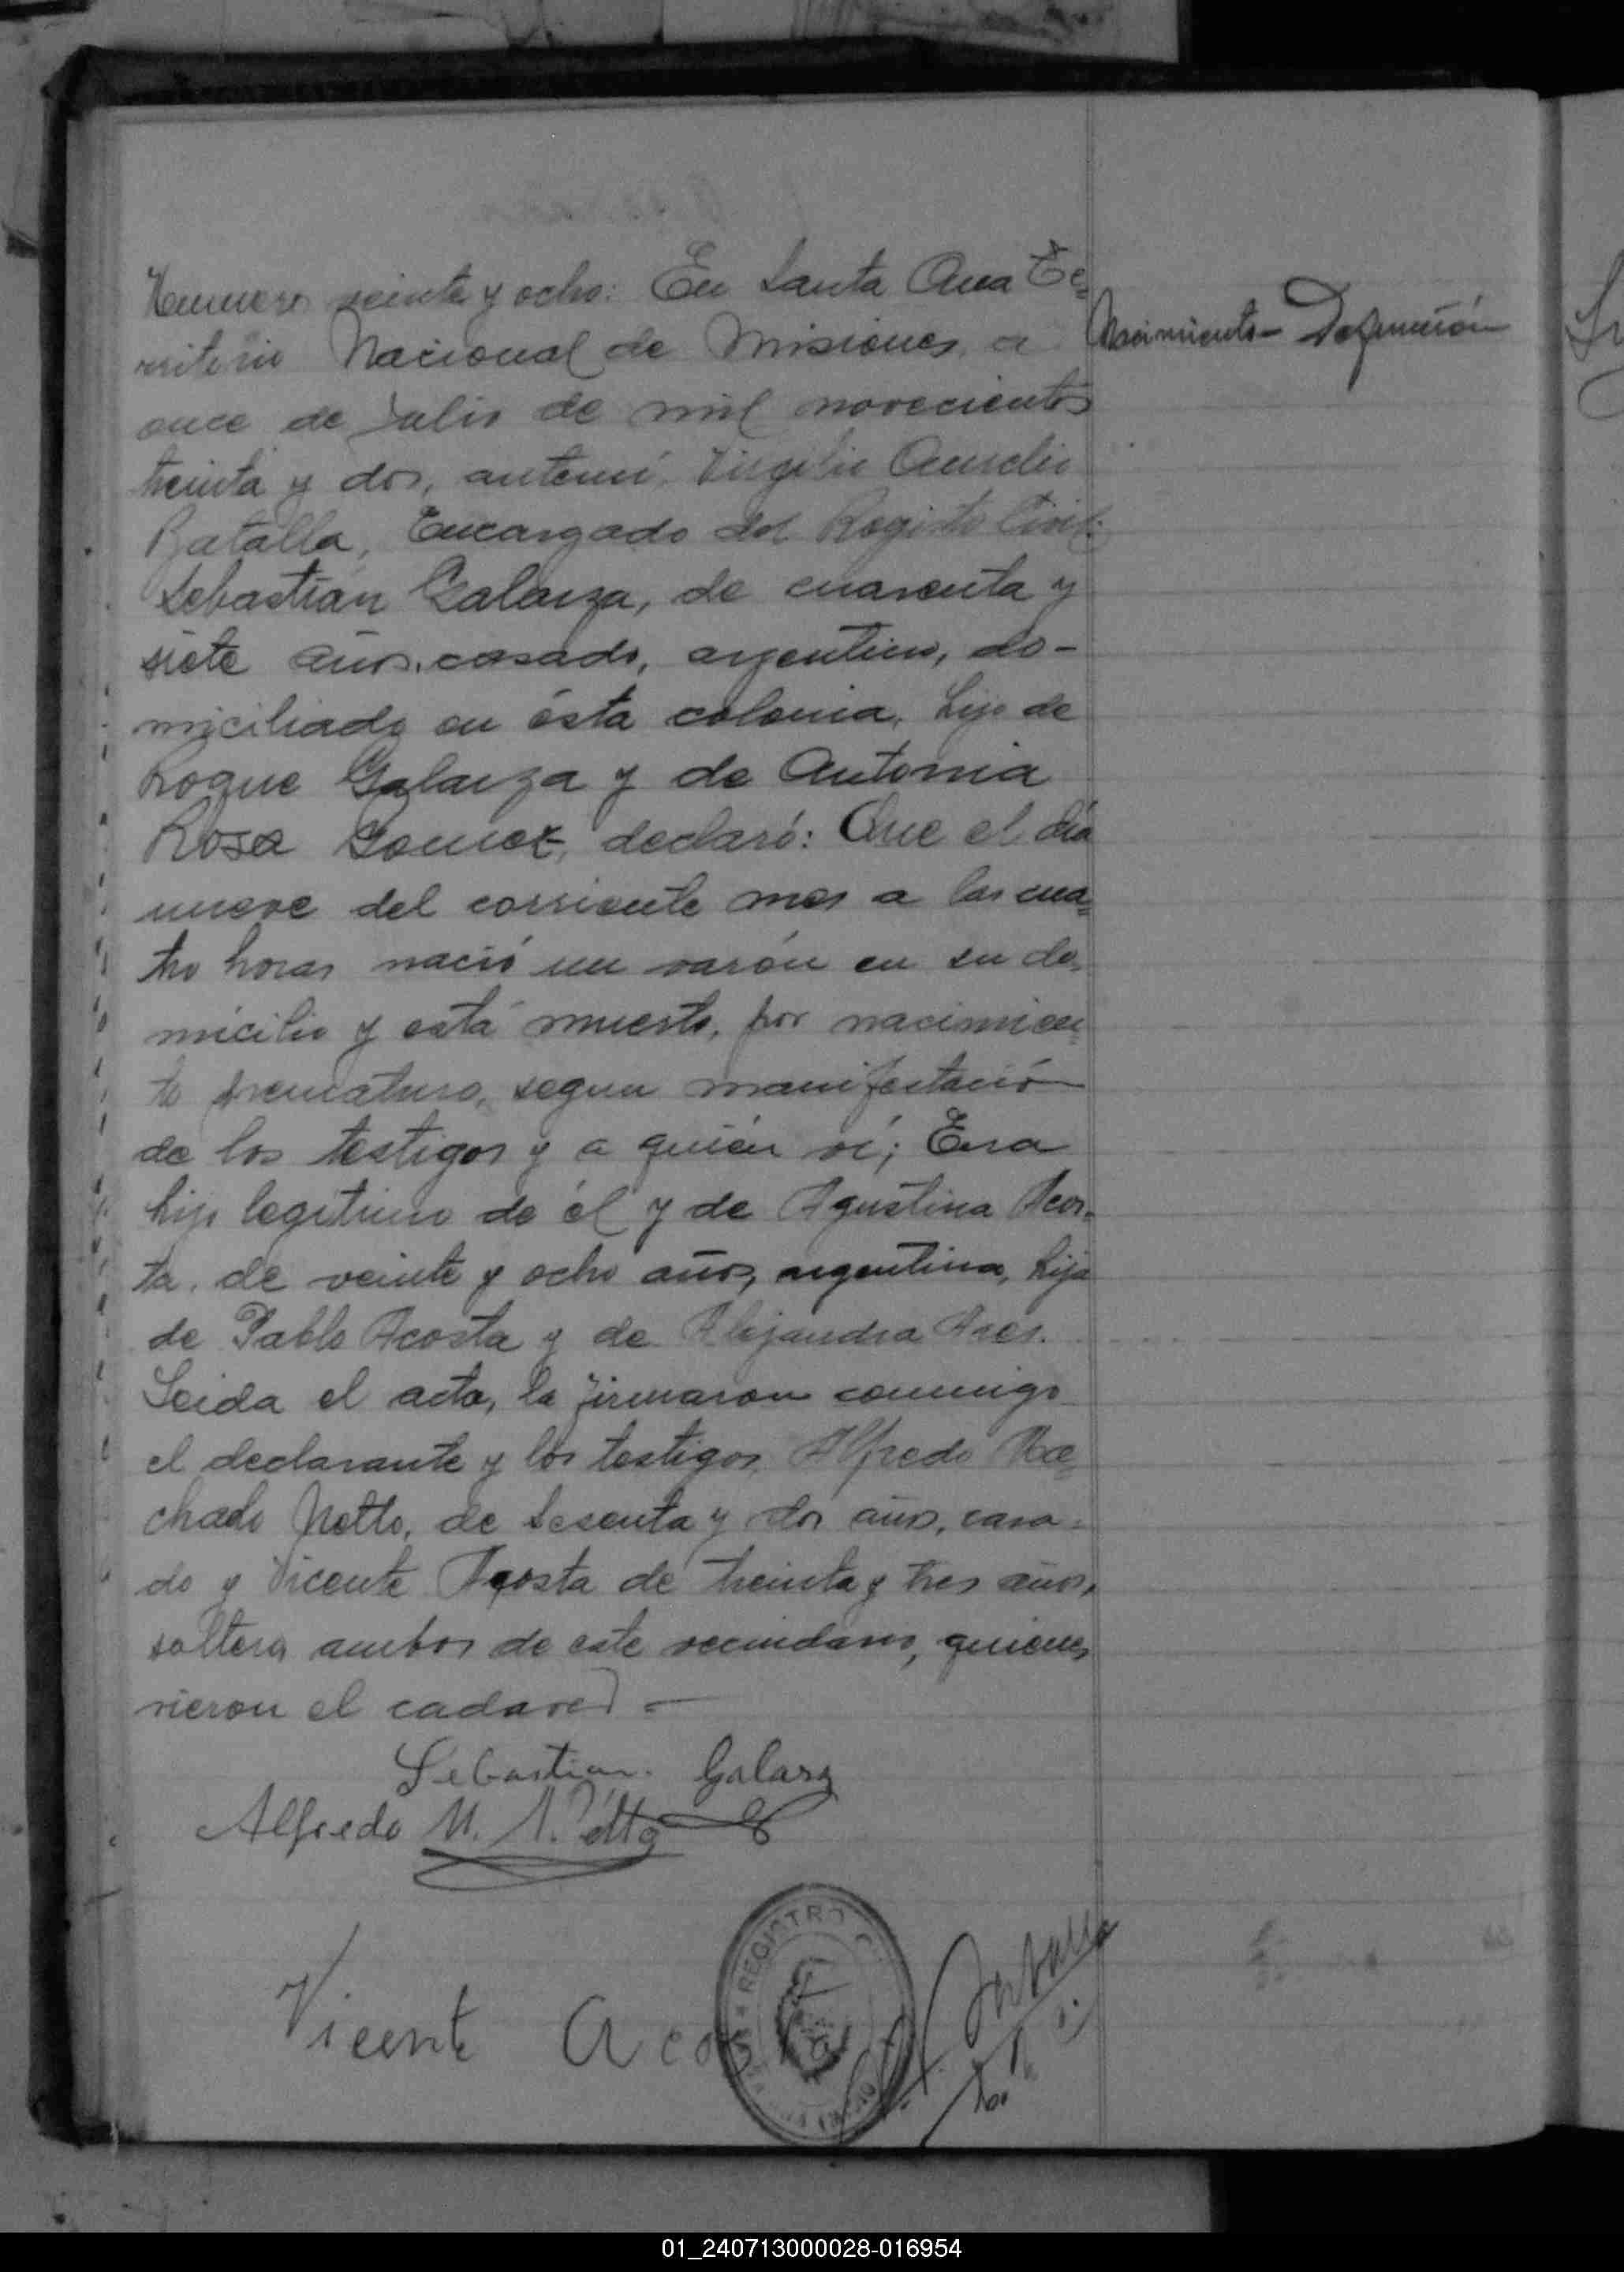 Numero veinte y ocho: En Santa Ana Te=
rritorio Nacional de Misiones, a
Nacimiento - Defunción
once de Julio de mil novecientos
treinta y dos, antemí, Virgilio Aurelio
Batalla, Encargado del Registro Civil:
Sebastián Galarza, de cuarenta y
siete años, casado, argentino, do-
miciliado en ésta colonia, hijo de
Roque Galarza y de Antonia
Rosa Gomez, declaró: Que el día
nueve del corriente mes a las cua=
tro horas nació un varón en su do=
micilio y está muerto, por nacimien=
to prematuro, segun manifestación
de los testigos y a quién ví; Era
hijo legítimo de él y de Agustina Acos=
ta, de veinte y ocho años, argentina, hija
de Pablo Acosta y de Alejandra
Leida el acta, la firmaron conmigo
el declarante y los testigos, Alfredo Ma=
chado Netto, de sesenta y dos años, casa=
do y Vicente Acosta de treinta y tres años,
soltero, ambos de este vecindario, quienes
vieron el cadaver -
Sebastian. Galarz
Alfredo M. Netto
Vicente Acosta
REGISTRO
Batalla
01_240713000028-016954